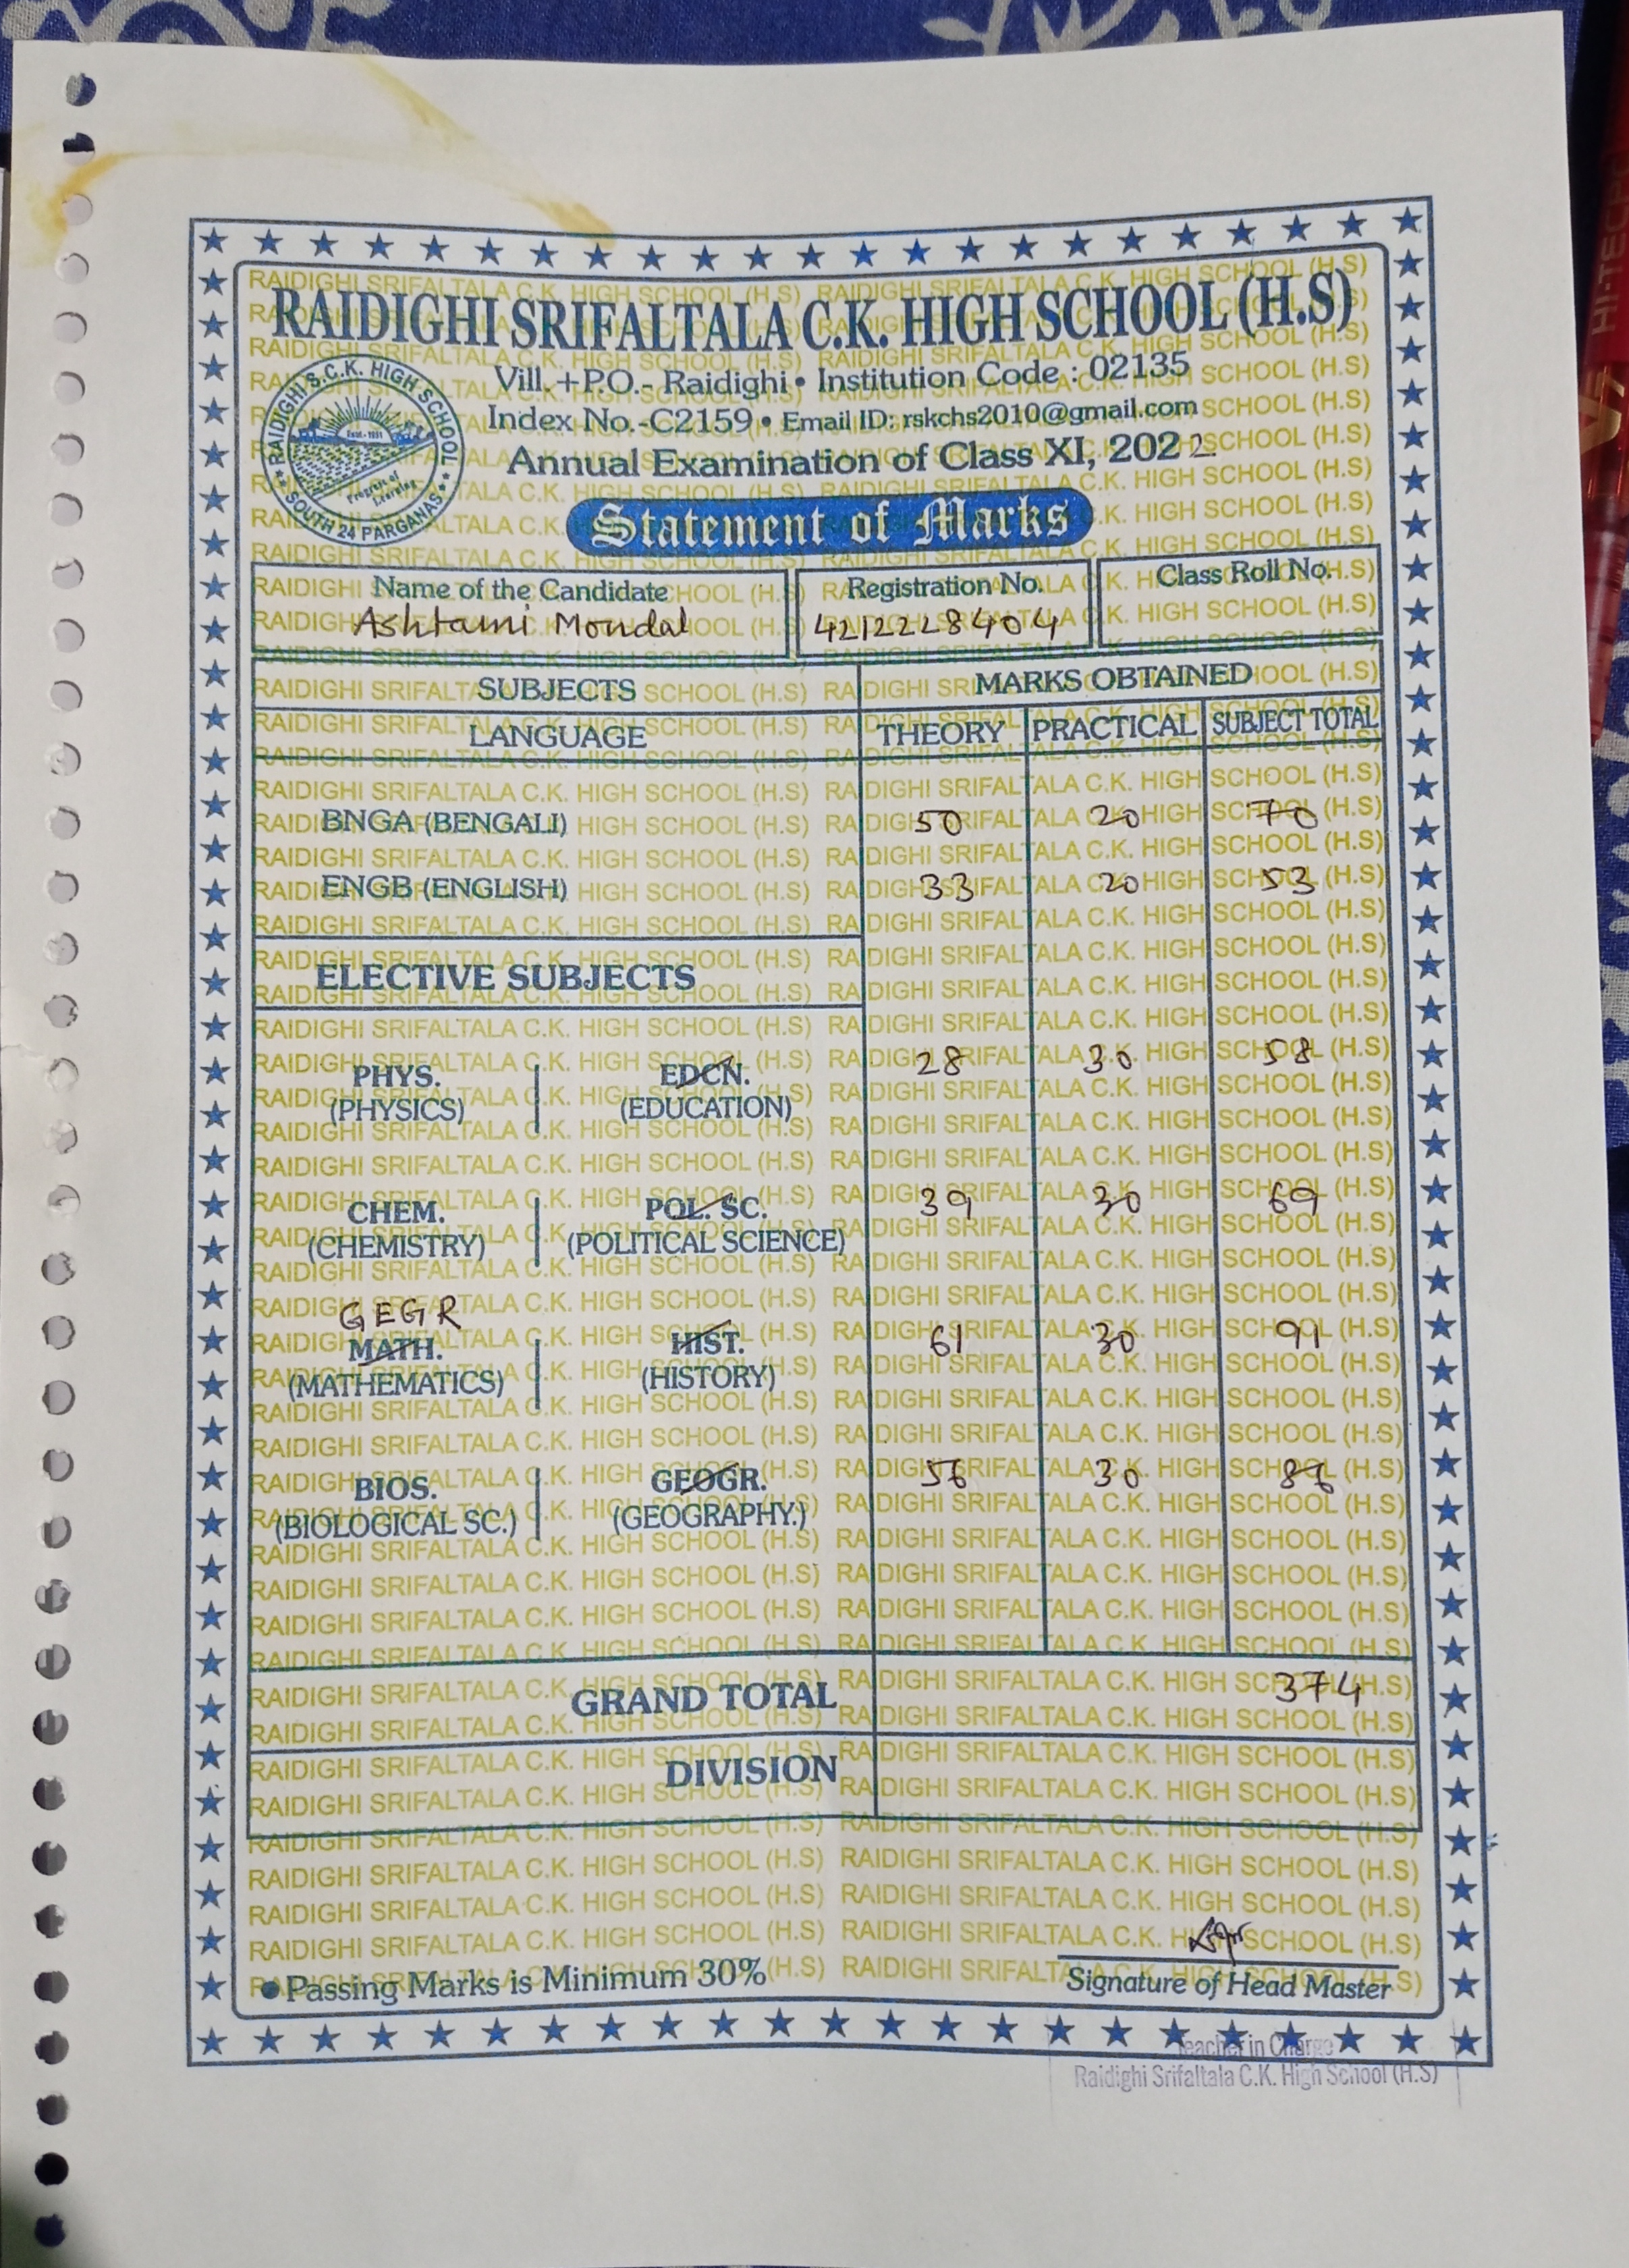 RAIDIGHI SRIFALTALA C.K. HIGH SCHOOL (H.S)
RAIDIGHI S.C.K. HIGH SCHOOL
Estd-1931
Progress of Learning
SOUTH 24 PARGANAS
Vill.+P.O.- Raidighi • Institution Code : 02135
Index No.-C2159 • Email ID: rskchs2010@gmail.com
Annual Examination of Class XI, 2022
Statement of Marks
Name of the Candidate Registration No. Class Roll No.
Ashtami Mondal 4212228404
SUBJECTS MARKS OBTAINED
LANGUAGE THEORY PRACTICAL SUBJECT TOTAL
BNGA (BENGALI) 50 20 70
ENGB (ENGLISH) 33 20 53
ELECTIVE SUBJECTS
PHYS. EDCN. 28 30 58
(PHYSICS) (EDUCATION)
CHEM. POL. SC. 39 30 69
(CHEMISTRY) (POLITICAL SCIENCE)
GEGR
MATH. HIST. 61 30 91
(MATHEMATICS) (HISTORY)
BIOS. GEOGR. 56 30 86
(BIOLOGICAL SC.) (GEOGRAPHY.)
GRAND TOTAL 374
DIVISION
• Passing Marks is Minimum 30%
Signature of Head Master
Teacher in Charge
Raidighi Srifaltala C.K. High School (H.S)
HI-TECP
V7